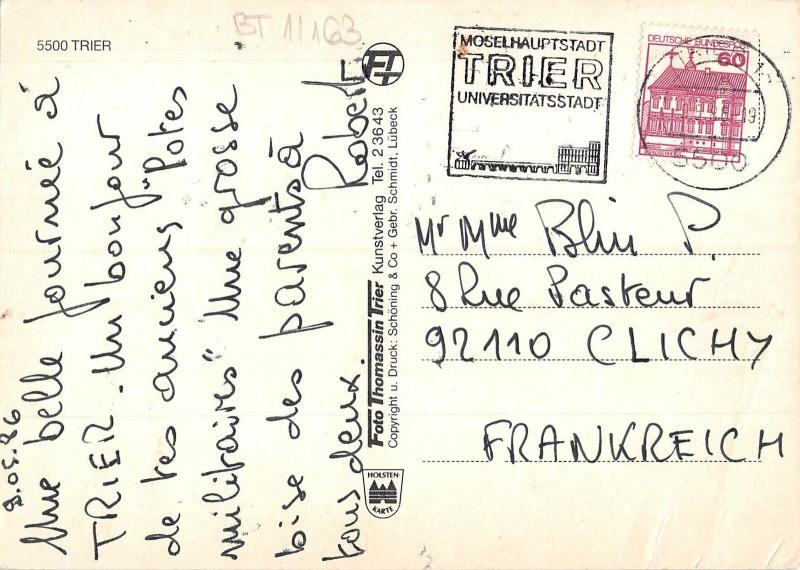 5500 TRIER
BT 11163
9.05.86
Une belle journée à
TRIER. Un bonjour
de tes anciens "Potes
militaires" Une grosse
bise des parents à
tous deux. Robert
Foto Thomassin Trier Kunstverlag Tel. 2 36 43
Copyright u. Druck: Schöning & Co + Gebr. Schmidt, Lübeck
HOLSTEN-
KARTE
MOSELHAUPTSTADT
TRIER
UNIVERSITÄTSSTADT
DEUTSCHE BUNDESPOST
60
5500
Mr Mme Blin P.
8 Rue Pasteur
92110 CLICHY
FRANKREICH